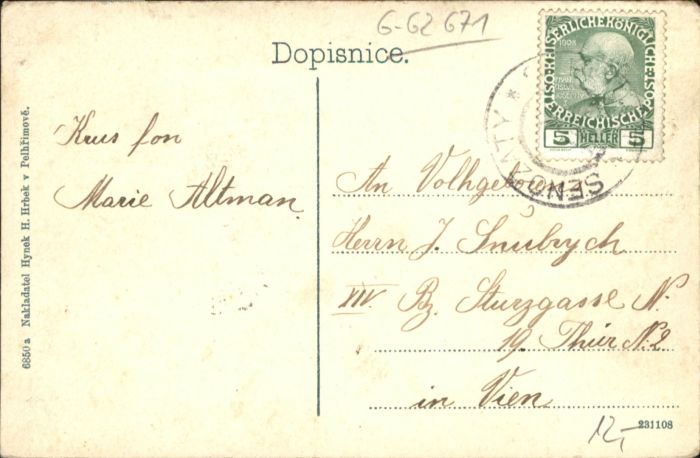 G-G2 671
Dopisnice.
1908
KAISERLICHEKÖNIGLICHE
ÖSTERREICHISCHE POST
5 HELLER 5
SENOŽATY
Krus fon
Marie Altman
An Volhgeboren
Herrn J. Snubrych
XIV. Bz. Sturzgasse N.
19. Thür N. 2
in Vien
6850a Nakladatel Hynek H. Hrbek v Pelhřimově.
12,-
231108